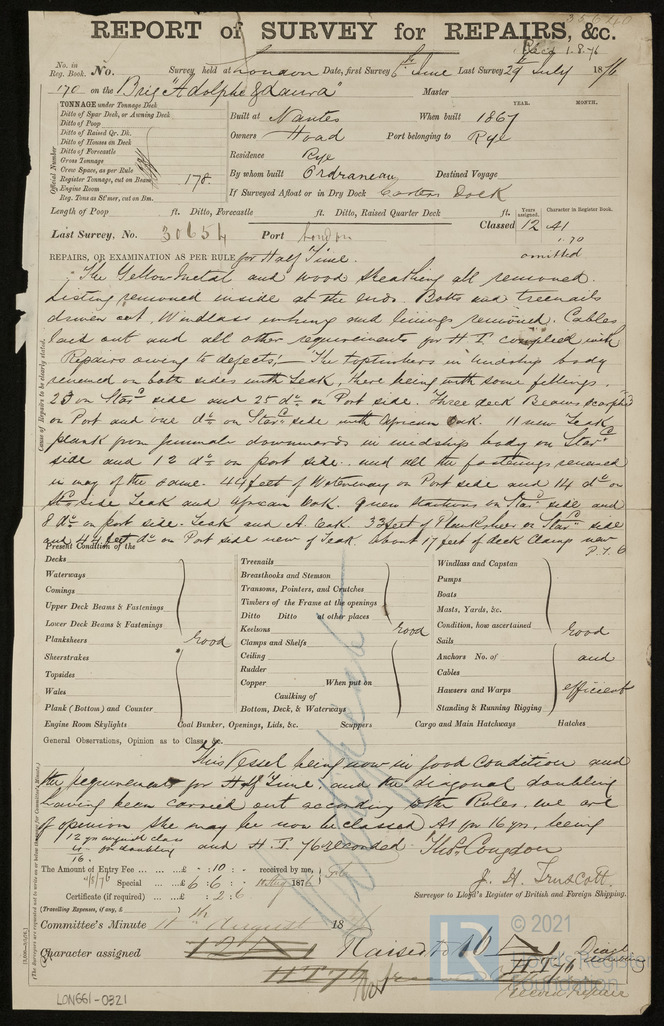 REPORT of SURVEY for REPAIRS, &c.
Rec'd 1.8.76
No. in Reg. Book. No. Survey held at London Date, first Survey 6th June Last Survey 29th July 1876
170 on the Brig "Adolphe & Laura" Master
TONNAGE under Tonnage Deck
Ditto of Spar Deck, or Awning Deck
Ditto of Poop
Ditto of Raised Qr. Dk.
Ditto of Houses on Deck
Ditto of Forecastle
Gross Tonnage
Crew Space, as per Rule
Register Tonnage, cut on Beam 178
Engine Room
Reg. Tons as St'mer, cut on Bm.
Official Number
YEAR. MONTH.
Built at Nantes When built 1867
Owners Hoad Port belonging to Rye
Residence Rye
By whom built Destined Voyage
If Surveyed Afloat or in Dry Dock Carters Dock
Length of Poop ft. Ditto, Forecastle ft. Ditto, Raised Quarter Deck ft.
Years assigned. Character in Register Book.
Last Survey, No. 30654 Port London Classed 12 A1
1.70
omitted
REPAIRS, OR EXAMINATION AS PER RULE for Half Time.
The Yellow Metal and wood sheathing all removed.
Listing removed inside at the ends. Bolts and treenails
driven out, Windlass unhung and linings removed. Cables
laid out and all other requirements for H T complied with
Repairs owing to defects;— The toptimbers in midship body
renewed on both sides with Teak, there being with some fillings,
25 on Starbd side and 25 do on Port side. Three deck Beams
on Port and one do on Starbd side with African Oak. 11 new Teak
plank from downwards in midship body on Starbd
side and 12 do on port side. and all the fastenings renewed
in way of the same. 44 feet of Waterway on Port side and 14 do on
Starbd side Teak and African Oak. 9 new Stantions on Starbd side and
8 do on port side. Teak and A. Oak. 33 feet of Planksheer on Starbd side
and 44 feet do on Port side new of Teak. About 17 feet of deck Clamp new
P.T.O
Cause of Repairs to be clearly stated.
Present Condition of the
Decks
Waterways
Comings
Upper Deck Beams & Fastenings
Lower Deck Beams & Fastenings
Planksheers
Sheerstrakes
Topsides
Wales
Plank (Bottom) and Counter
Good
Treenails
Breasthooks and Stemson
Transoms, Pointers, and Crutches
Timbers of the Frame at the openings
Ditto Ditto at other places
Keelsons
Clamps and Shelfs
Ceiling
Rudder
Copper When put on
Caulking of
Bottom, Deck, & Waterways
Good
Windlass and Capstan
Pumps
Boats
Masts, Yards, &c.
Condition, how ascertained
Sails
Anchors No. of
Cables
Hawsers and Warps
Standing & Running Rigging
Good
and
efficient
Engine Room Skylights Coal Bunker, Openings, Lids, &c. Scuppers Cargo and Main Hatchways Hatches
General Observations, Opinion as to Class, &c.
This Vessel being now in good Condition and
the requirements for Half Time, and the diagonal doubling
having been carried out according to the Rules, we are
of opinion she may be now be classed A1 for 16 yrs, being
12 yrs class
4 on doubling
16.
and H. T. 76 recorded
Thos. Congdon
J. H. Truscott
Surveyor to Lloyd's Register of British and Foreign Shipping.
The Amount of Entry Fee ... £ : 10 : received by me,
Special ... £ 6 : 6 : 1876
Certificate (if required) ... £ : 2 : 6
(Travelling Expenses, if any, £ )
Committee's Minute 11 August 18
Character assigned Raised to 16
H.T.76
© 2021
LR
Lloyd's Register
Foundation
LON661-0321